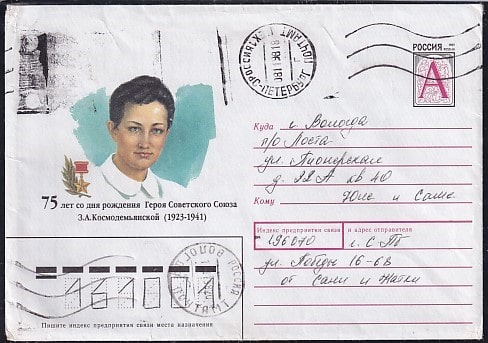 РОССИЯ
А
РОССИЯ САНКТ-ПЕТЕРБУРГ
ПОЧТАМТ
Куда г. Вологда
п/о Лоста
ул. Пионерская
д. 22А кв 40
Кому Юле и Саше
75 лет со дня рождения Героя Советского Союза
З.А.Космодемьянской (1923-1941)
Индекс предприятия связи и адрес отправителя
196070 г. С Пб
ул. Победы 16-68
от Сани и Натки
РОССИЯ ВОЛОГДА
ПОЧТАМТ
Пишите индекс предприятия связи места назначения